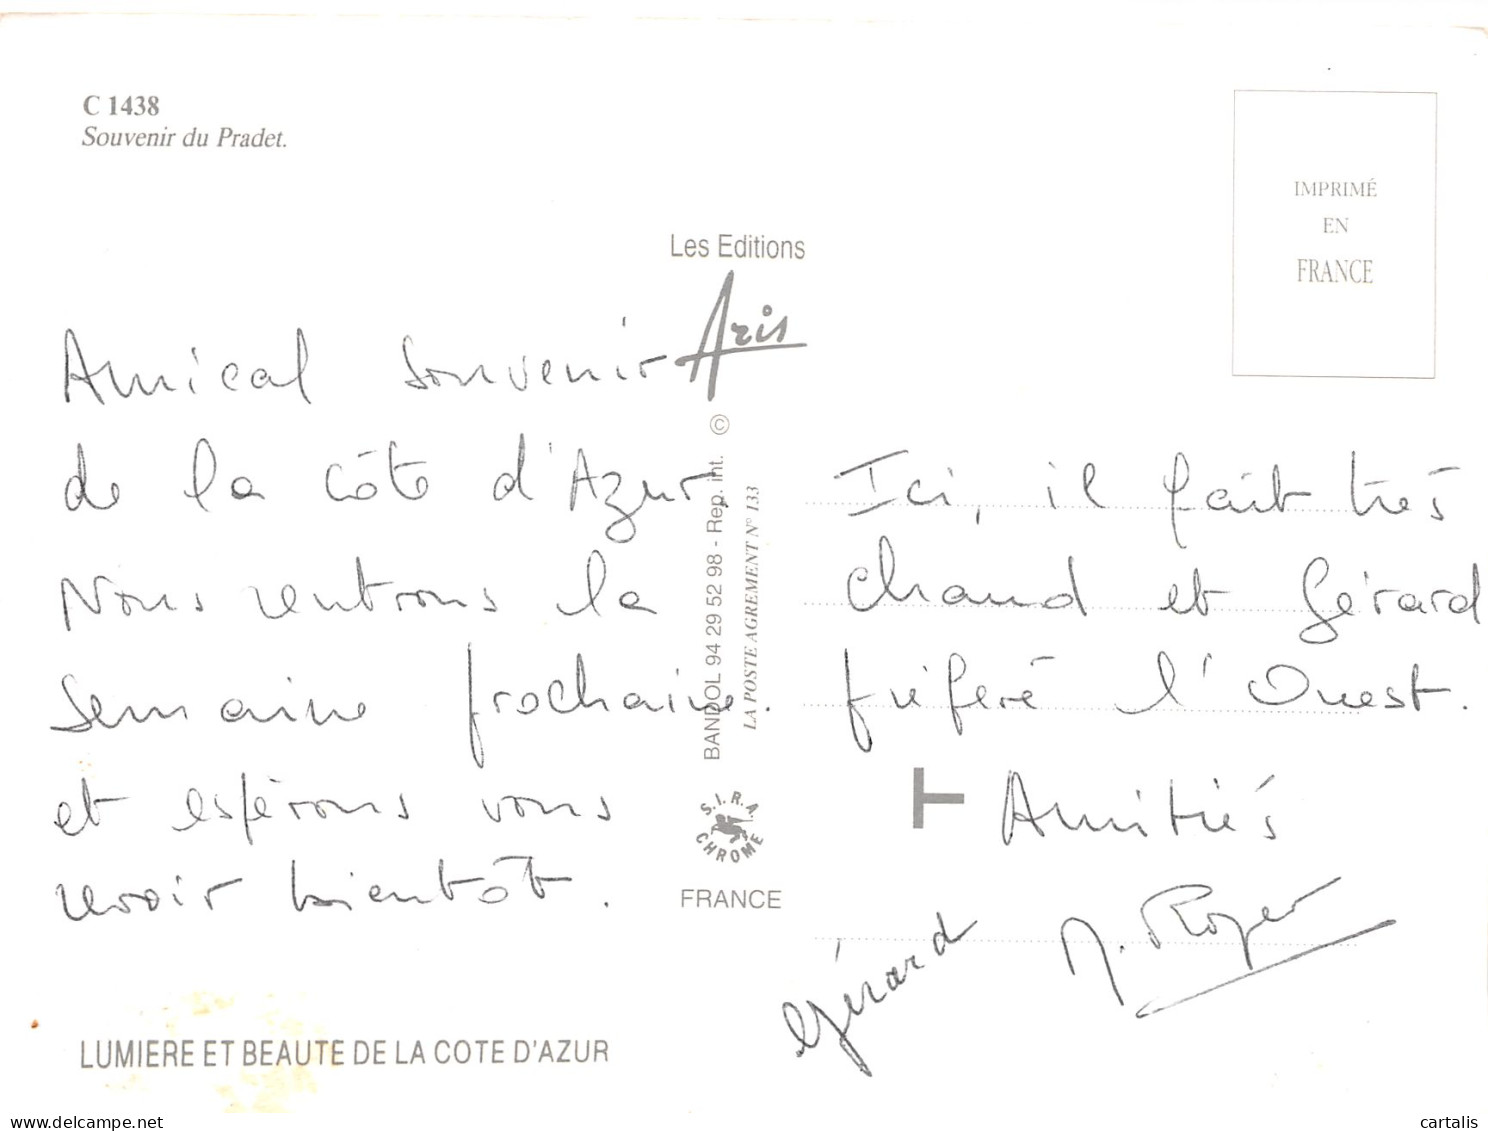 C 1438
Souvenir du Pradet.
IMPRIMÉ
EN
FRANCE
Les Editions
Aris
Amical souvenir
de la côte d'Azur.
Nous rentrons la
semaine prochaine.
et espérons vous
revoir bientôt.
©
BANDOL 94 29 52 98 - Rep. int.
LA POSTE AGREMENT N° 133
S.I.R.A.
CHROME
FRANCE
Ici, il fait très
chaud et Gérard
préfère l'Ouest.
Amitiés
M. Roger
Gérard
LUMIERE ET BEAUTE DE LA COTE D'AZUR
delcampe.net
cartalis